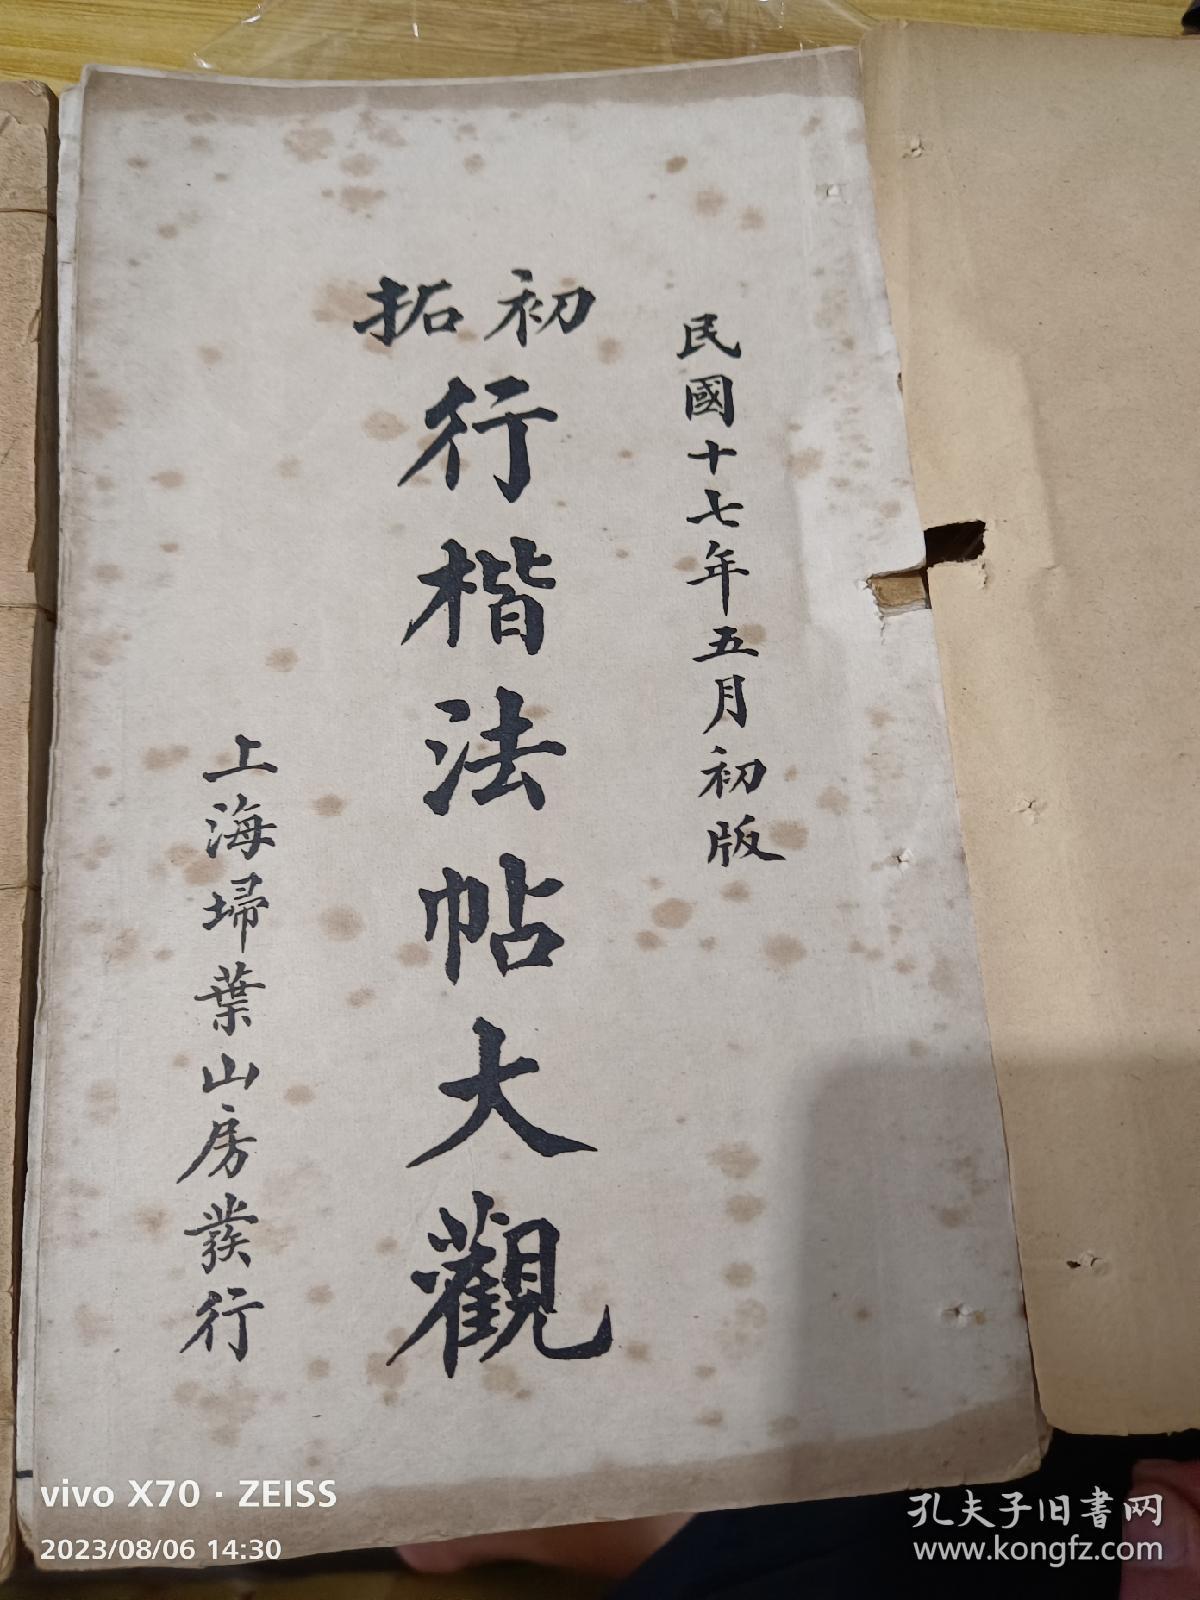 民國十七年五月初版
初拓
行楷法帖大觀
上海埽葉山房發行
vivo X70 · ZEISS
2023/08/06 14:30
孔夫子旧书网
www.kongfz.com